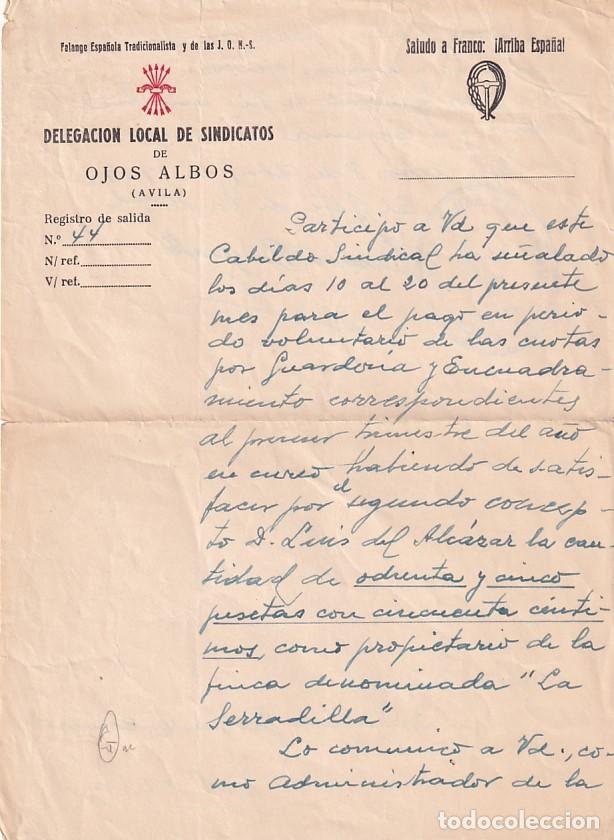 Falange Española Tradicionalista y de las J. O. N.-S.
Saludo a Franco: ¡Arriba España!
DELEGACION LOCAL DE SINDICATOS
DE
OJOS ALBOS
(AVILA)
Registro de salida
N.º 44
N/ ref.
V/ ret.
Participo a Vd que este
Cabildo Sindical ha señalado
los días 10 al 20 del presente
mes para el pago en perio-
do voluntario de las cuotas
por Guardería y Encuadra-
miento correspondientes
al primer trimestre del año
en curso habiendo de satis-
facer por el segundo concep-
to D. Luis del Alcázar la can-
tidad de ochenta y cinco
pesetas con cincuenta cénti-
mos, como propietario de la
finca denominada "La
Serradilla"
Lo comunico a Vd., co-
mo Administrador de la
todocoleccion